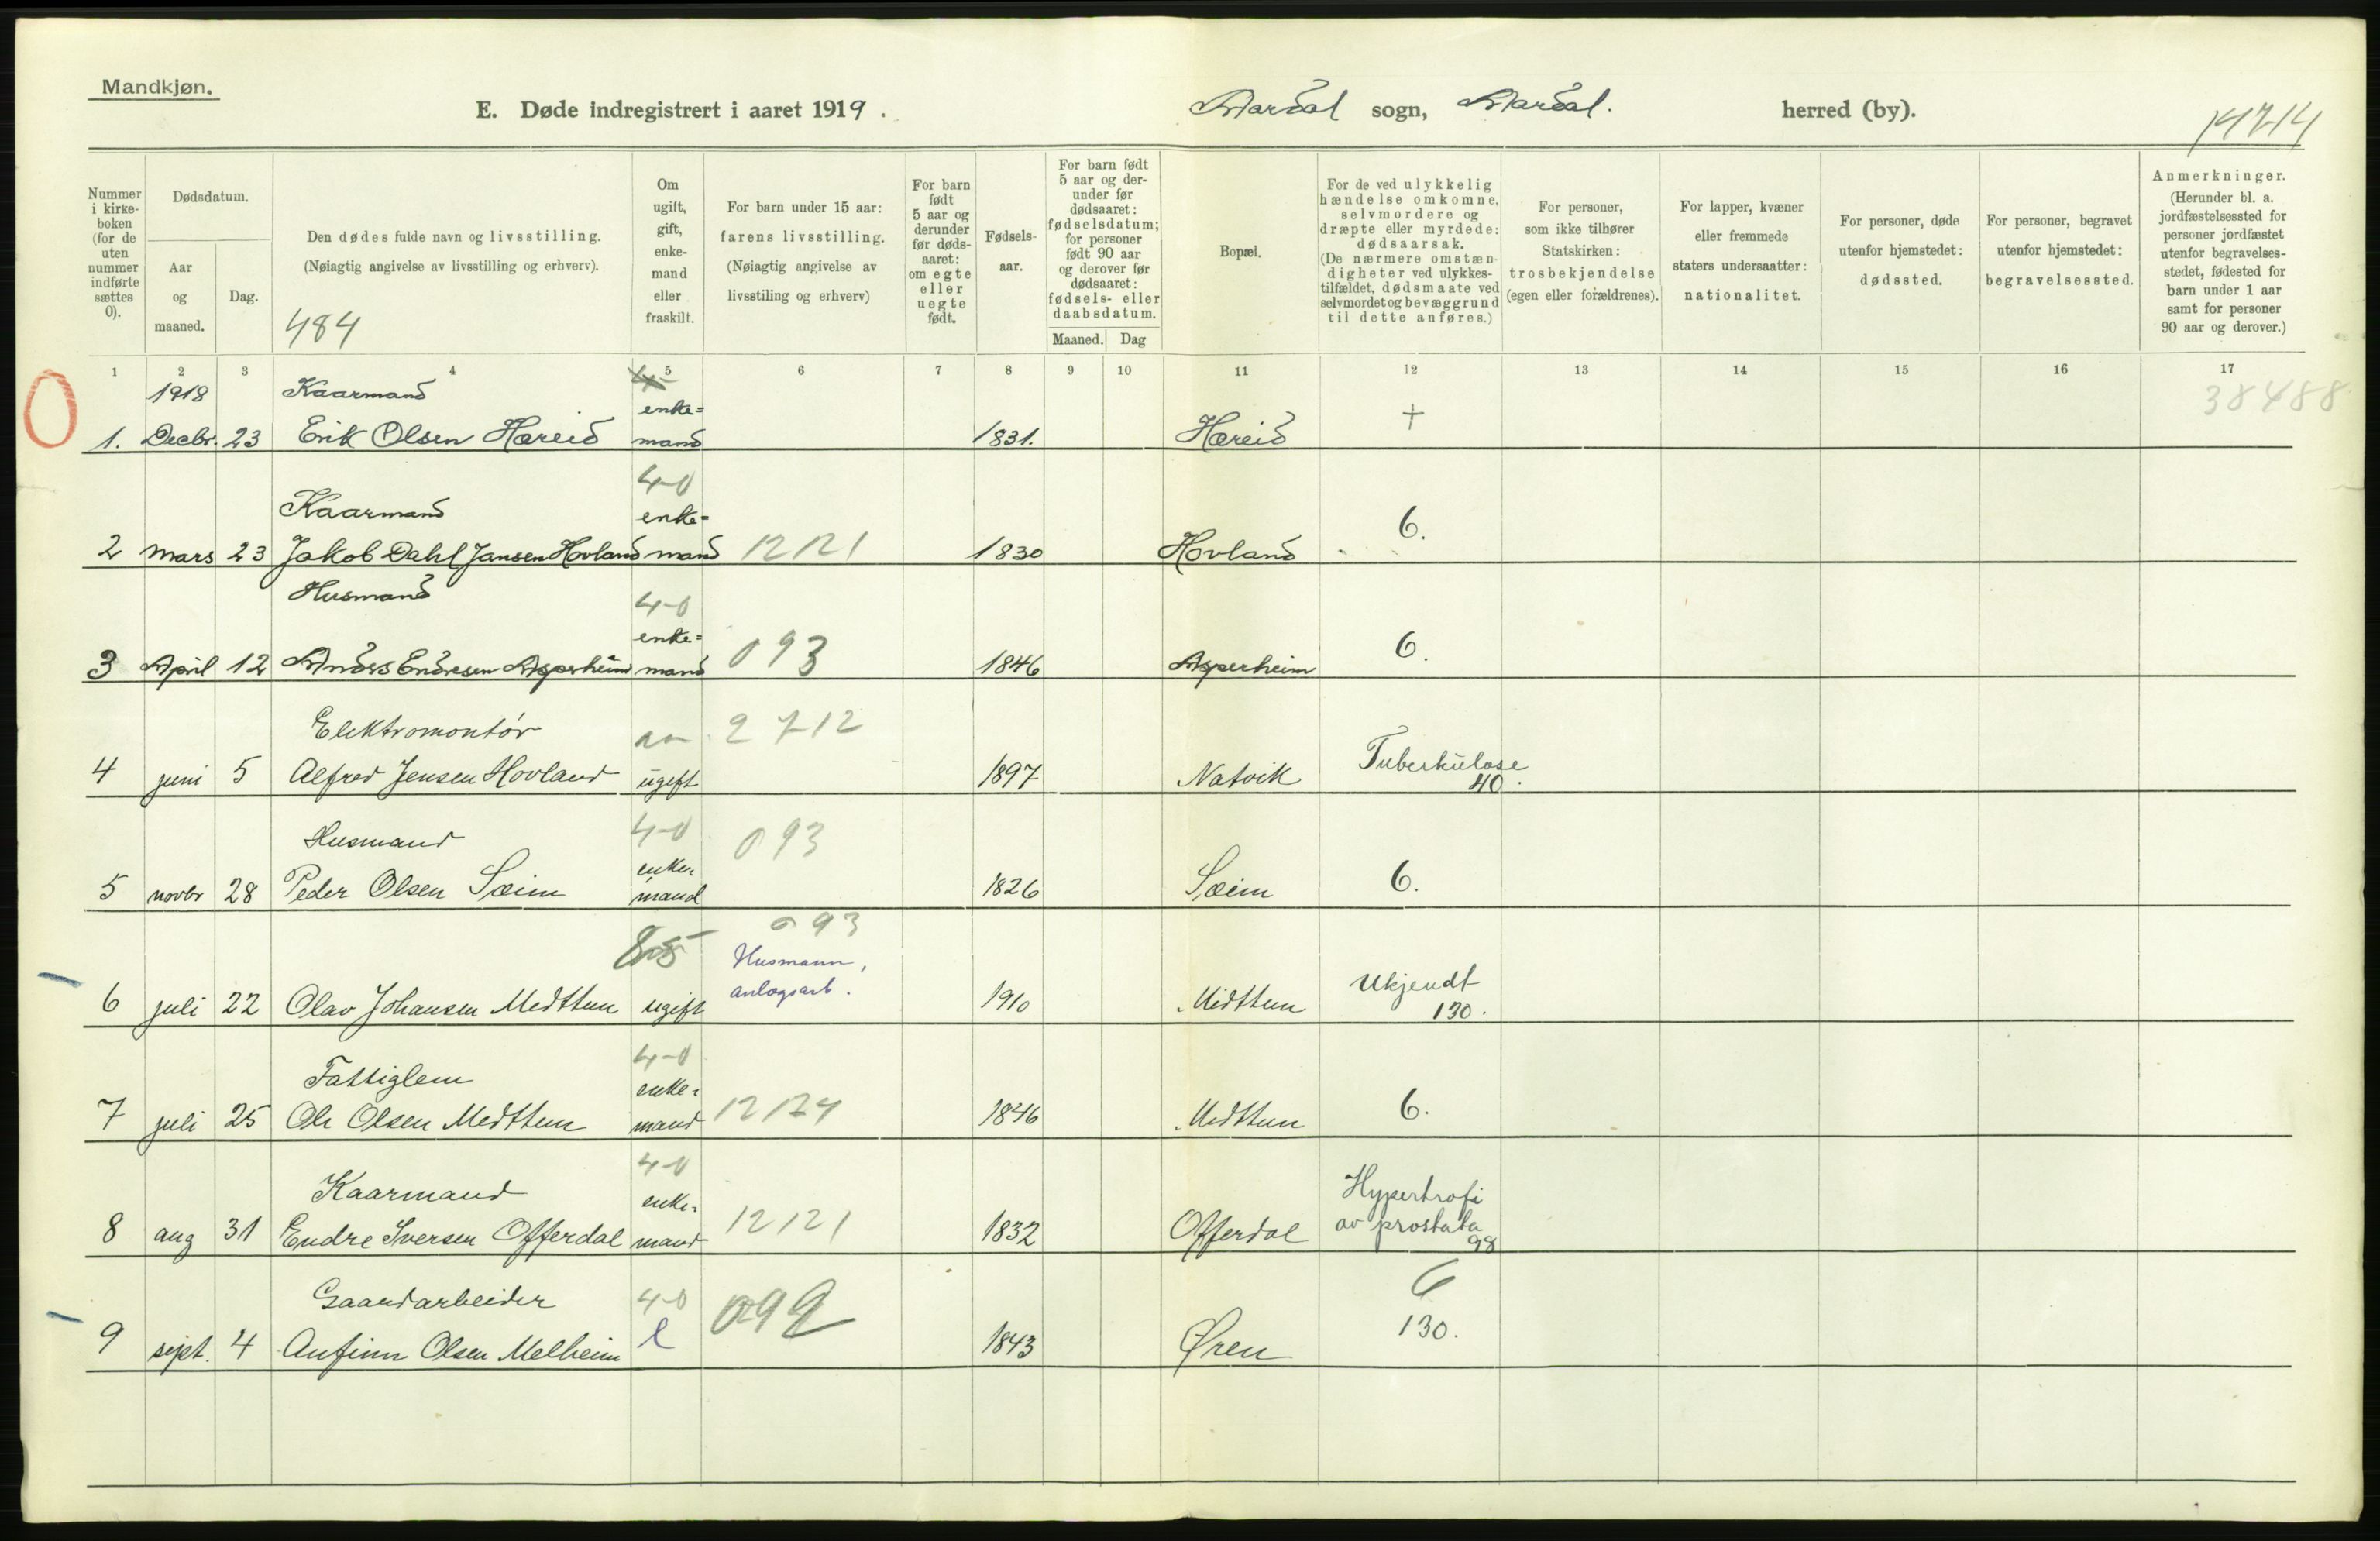 Mandkjøn.
E. Døde indregistrert i aaret 1919.
Aardal sogn, Aardal. herred (by).
14214
Nummer i kirke-boken (for de uten nummer indførte sættes 0).
Dødsdatum.
Aar og maaned.
Dag.
Den dødes fulde navn og livsstilling.
(Nøiagtig angivelse av livsstilling og erhverv).
484
Om ugift, gift, enke-mand eller fraskilt.
For barn under 15 aar: farens livsstilling.
(Nøiagtig angivelse av livsstiling og erhverv)
For barn født 5 aar og derunder før døds-aaret: om egte eller uegte født.
Fødsels-aar.
For barn født 5 aar og der-under før dødsaaret: fødselsdatum; for personer født 90 aar og derover før dødsaaret: fødsels- eller daabsdatum.
Maaned. Dag
Bopæl.
For de ved ulykkelig hændelse omkomne, selvmordere og dræpte eller myrdede: dødsaarsak.
(De nærmere omstæn-digheter ved ulykkes-tilfældet, dødsmaate ved selvmordet og bevæggrund til dette anføres.)
For personer, som ikke tilhører Statskirken: trosbekjendelse (egen eller forældrenes).
For lapper, kvæner eller fremmede staters undersaatter: nationalitet.
For personer, døde utenfor hjemstedet: dødssted.
For personer, begravet utenfor hjemstedet: begravelsessted.
Anmerkninger.
(Herunder bl. a. jordfæstelsessted for personer jordfæstet utenfor begravelses-stedet, fødested for barn under 1 aar samt for personer 90 aar og derover.)
1 2 3 4 5 6 7 8 9 10 11 12 13 14 15 16 17
0 1918 Kaarmand enke= + 38488
1. Decbr. 23 Erik Olsen Hæreid mand 1831. Hæreid
4-0
Kaarmand enke= 6.
2 mars 23 Jakob Dahl Jansen Hovland mand 1212 1 1830 Hovland
Husmand 4-0
enke= 6.
3 April 12 Anders Endresen Asperheim mand 093 1846 Asperheim
Elektromontør 2712 Tuberkulose
4 juni 5 Alfred Jensen Hovland ugift 1897 Natvik 40.
Husmand 4-0 093
enke- 6.
5 novbr 28 Peder Olsen Sæim mand 1826 Sæim
093
Husmann, Ukjendt
anlægsarb.
6 juli 22 Olav Johansen Medttun ugift 1910 Midttun 130.
4-0
Fattiglem enke- 6.
7 juli 25 Ole Olsen Medttun mand 12124 1846 Midttun
4-0
Kaarmand enke- Hypertrofi
av prostata
8 aug 31 Endre Iversen Offerdal mand 12121 1832 Offerdal 98
Gaardarbeider 4-0 099 6
130.
9 sept. 4 Anfinn Olsen Melheim e 1843 Øren